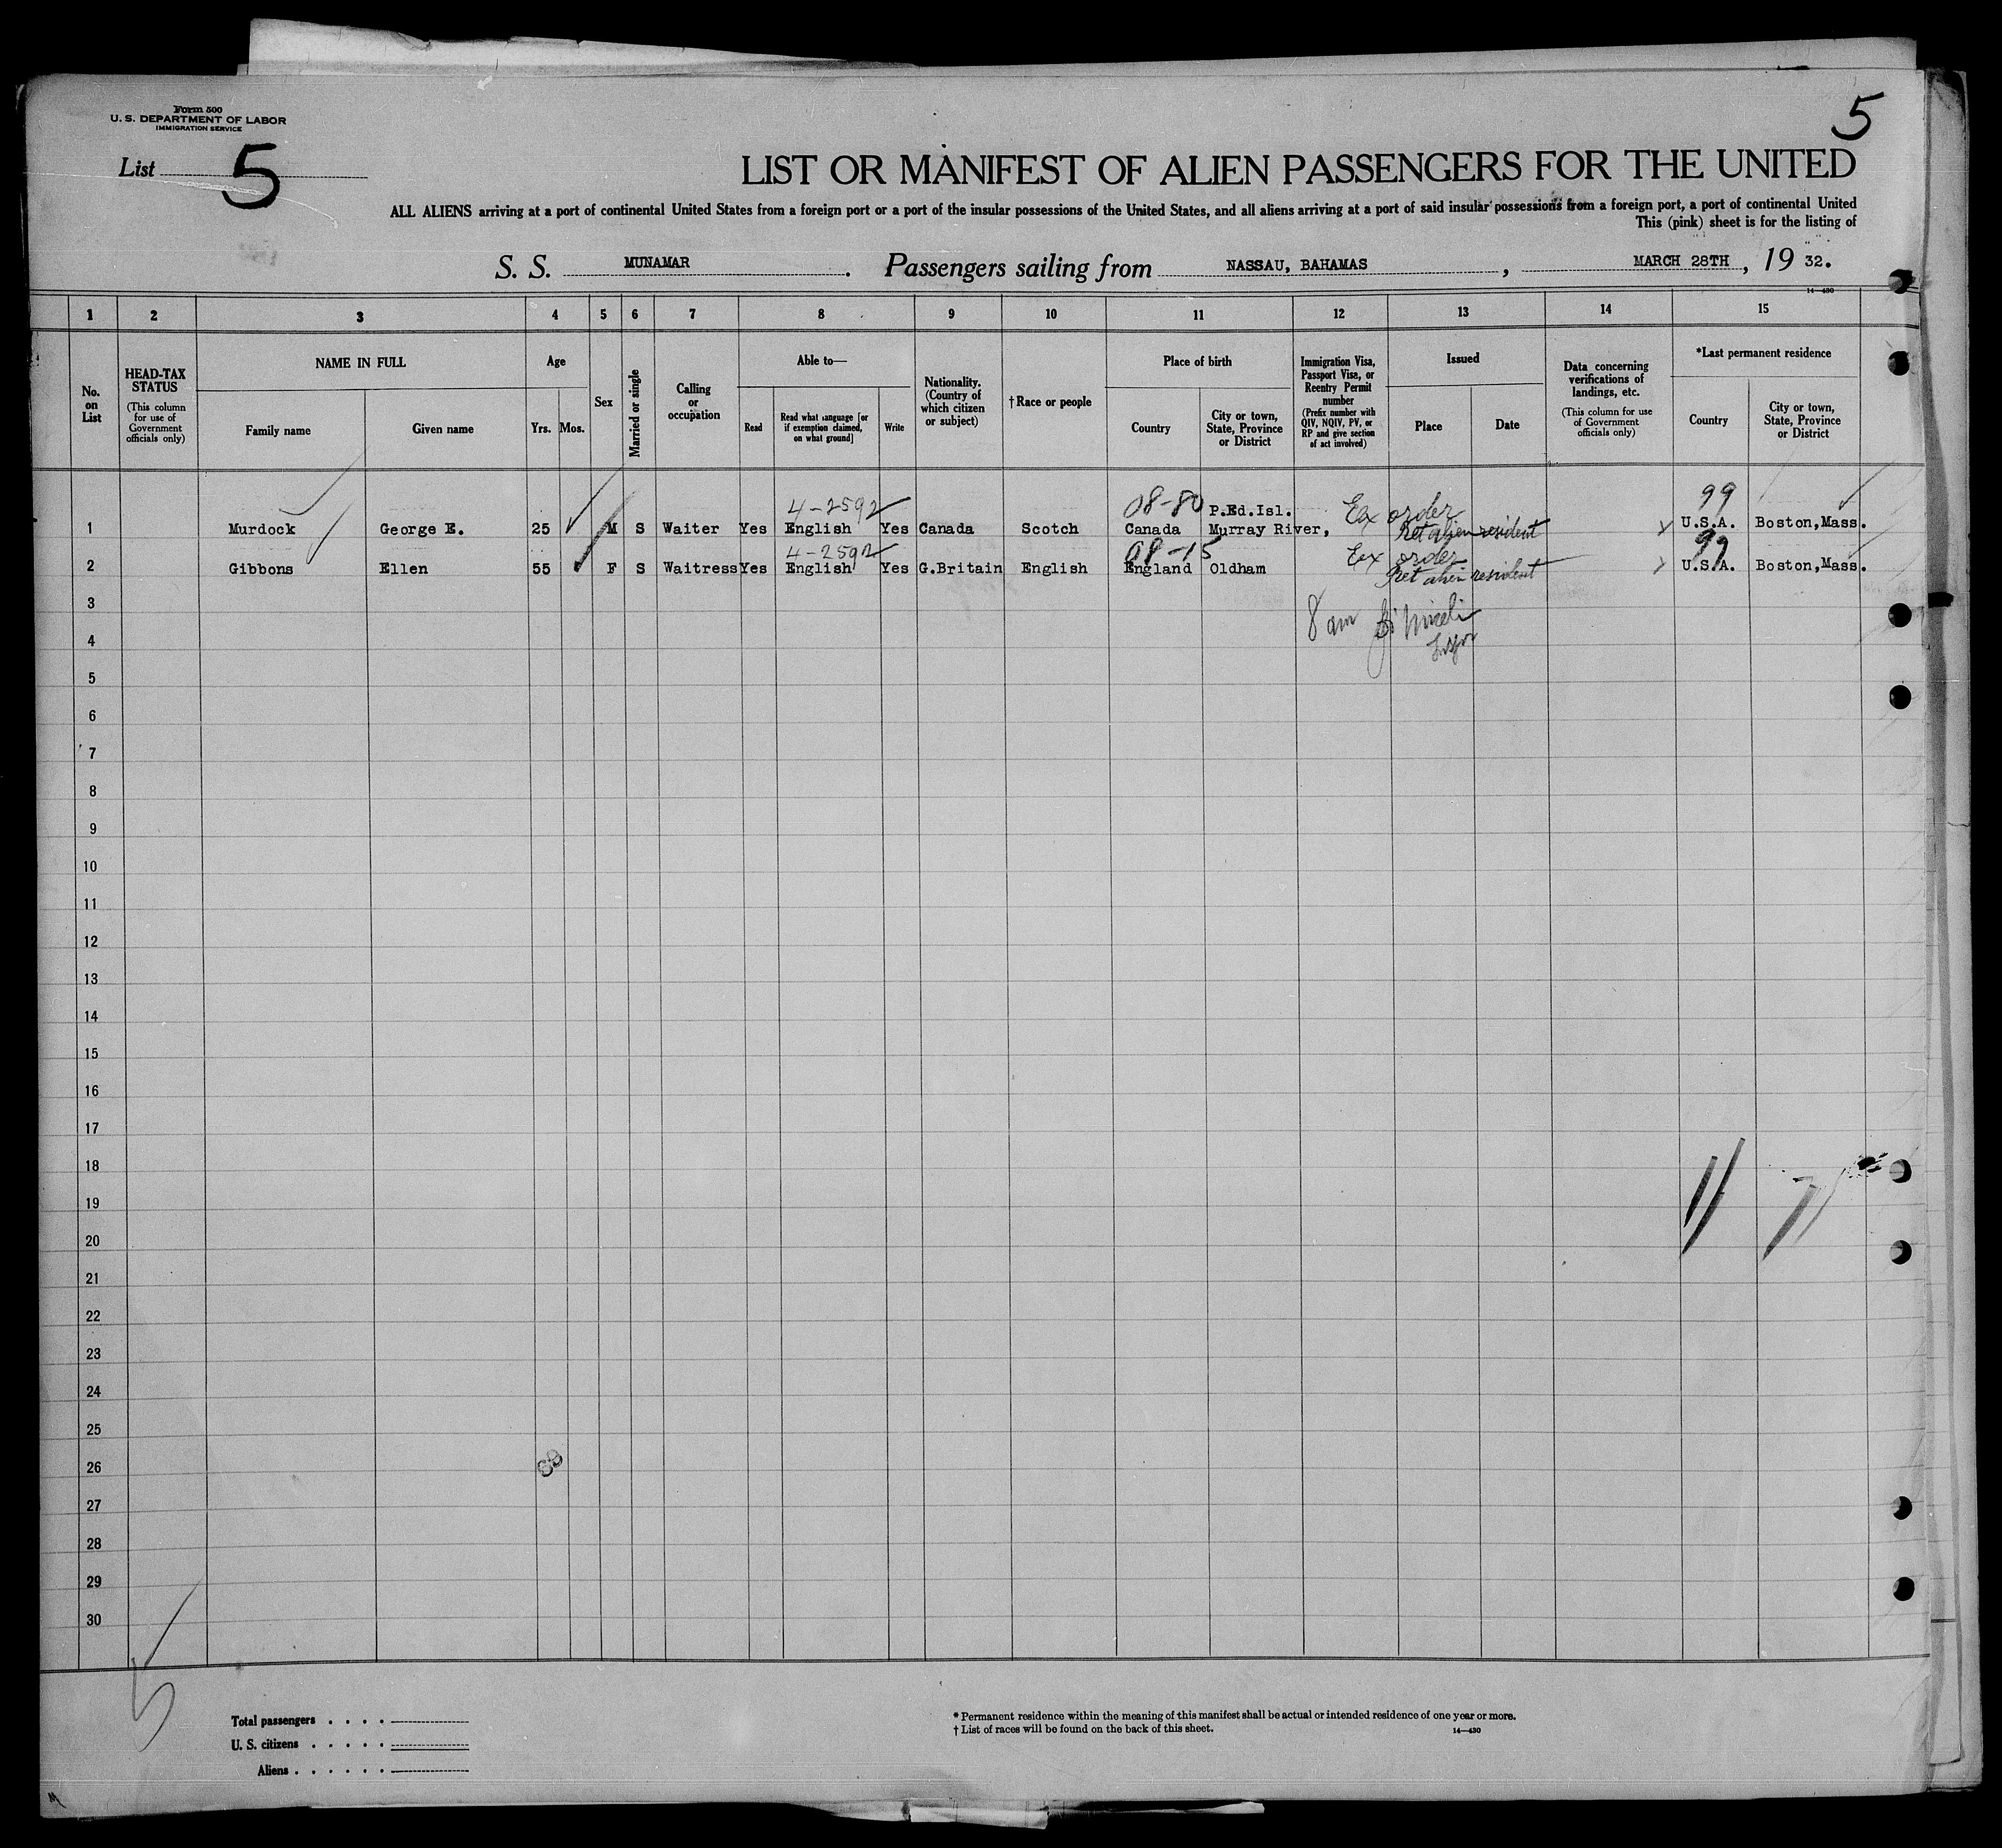 Form 500
U. S. DEPARTMENT OF LABOR
IMMIGRATION SERVICE
5
List 5
LIST OR MANIFEST OF ALIEN PASSENGERS FOR THE UNITED
ALL ALIENS arriving at a port of continental United States from a foreign port or a port of the insular possessions of the United States, and all aliens arriving at a port of said insular possessions from a foreign port, a port of continental United
This (pink) sheet is for the listing of
S. S. MUNAMAR. Passengers sailing from NASSAU, BAHAMAS, MARCH 28TH, 19 32.
14—430
1 2 3 4 5 6 7 8 9 10 11 12 13 14 15
No. on List
HEAD-TAX STATUS
(This column for use of Government officials only)
NAME IN FULL
Family name Given name
Age
Yrs. Mos.
Sex
Married or single
Calling or occupation
Able to—
Read
Read what language [or if exemption claimed, on what ground]
Write
Nationality. (Country of which citizen or subject)
†Race or people
Place of birth
Country
City or town, State, Province or District
Immigration Visa, Passport Visa, or Reentry Permit number
(Prefix number with QIV, NQIV, PV, or RP and give section of act involved)
Issued
Place Date
Data concerning verifications of landings, etc.
(This column for use of Government officials only)
*Last permanent residence
Country
City or town, State, Province or District
4-2592 08-80 P.Ed.Isl. Ex order 99
1 Murdock George E. 25 M S Waiter Yes English Yes Canada Scotch Canada Murray River, Ret alien resident U.S.A. Boston,Mass.
4-2592 08-15 Ex order 99
2 Gibbons Ellen 55 F S Waitress Yes English Yes G.Britain English England Oldham Ret alien resident U.S.A. Boston,Mass.
3 8 am
4
5
6
7
8
9
10
11
12
13
14
15
16
17
18
19
20
21
22
23
24
25
26
27
28
29
30
5
Total passengers . . . .
U. S. citizens . . . . .
Aliens . . . . . .
* Permanent residence within the meaning of this manifest shall be actual or intended residence of one year or more.
† List of races will be found on the back of this sheet. 14—430